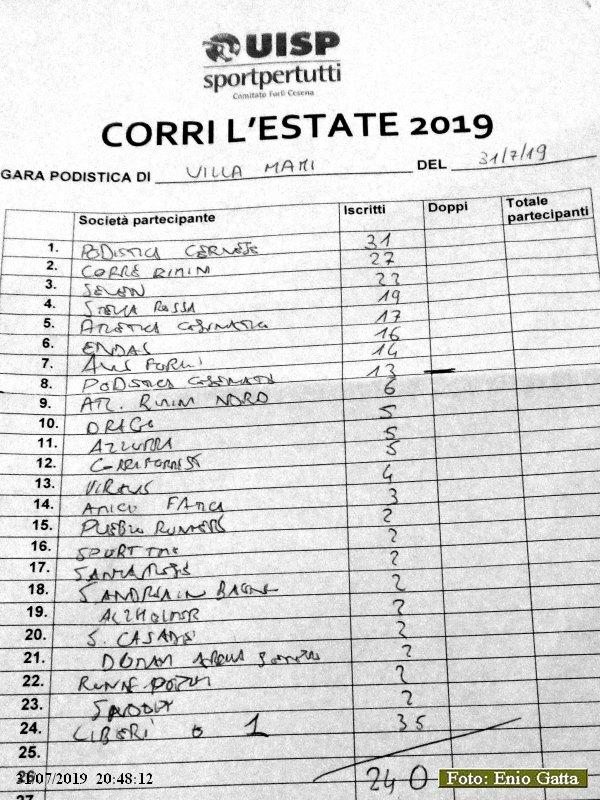 UISP
sportpertutti
Comitato Forlì Cesena
CORRI L'ESTATE 2019
GARA PODISTICA DI VILLA MAMI DEL 31/7/19
Società partecipante Iscritti Doppi Totale partecipanti
1. PODISTICA CERVESE 31
2. CORRE RIMINI 27
3. 22
4. STELLA ROSSA 19
5. ATLETICA CESENATICO 17
6. ENDAS 16
7. AVIS FORLI 14
8. PODISTICA CESENATE 13
9. ATL. RIMINI NORD 6
10. DRAGO 5
11. AZZURRA 5
12. CORRIFORREST 5
13. VIRTUS 4
14. AMICO FATICA 3
15. PUEBLO RUNNERS 2
16. SPORT TIME 2
17. 2
18. BAGNO 2
19. ALZHEIMER 2
20. S. CASADEI 2
21. 2
22. 2
23. 2
24. LIBERI 1 35
25.
26. 240
27
31/07/2019 20:48:12
Foto: Enio Gatta